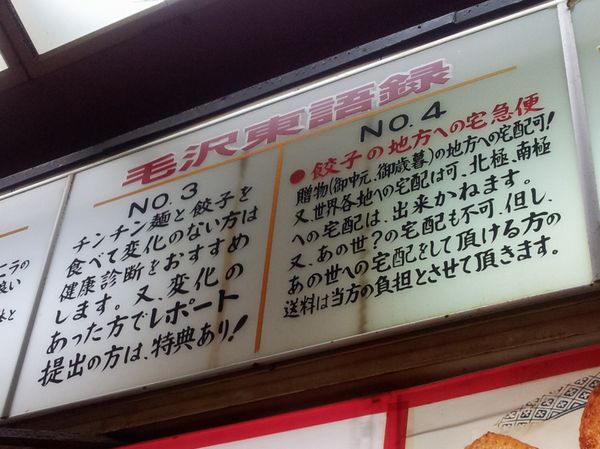 毛沢東語録
NO.3
チンチン麺と餃子を
食べて変化のない方は
健康診断をおすすめ
します。又、変化の
あった方でレポート
提出の方は、特典あり!
NO.4
●餃子の地方への宅急便
贈物(御中元、御歳暮)の地方への宅配可!
又、世界各地への宅配は可、北極、南極
への宅配は、出来かねます。
又、あの世?の宅配も不可、但し、
あの世への宅配をして頂ける方の
送料は当方の負担とさせて頂きます。
ニラの